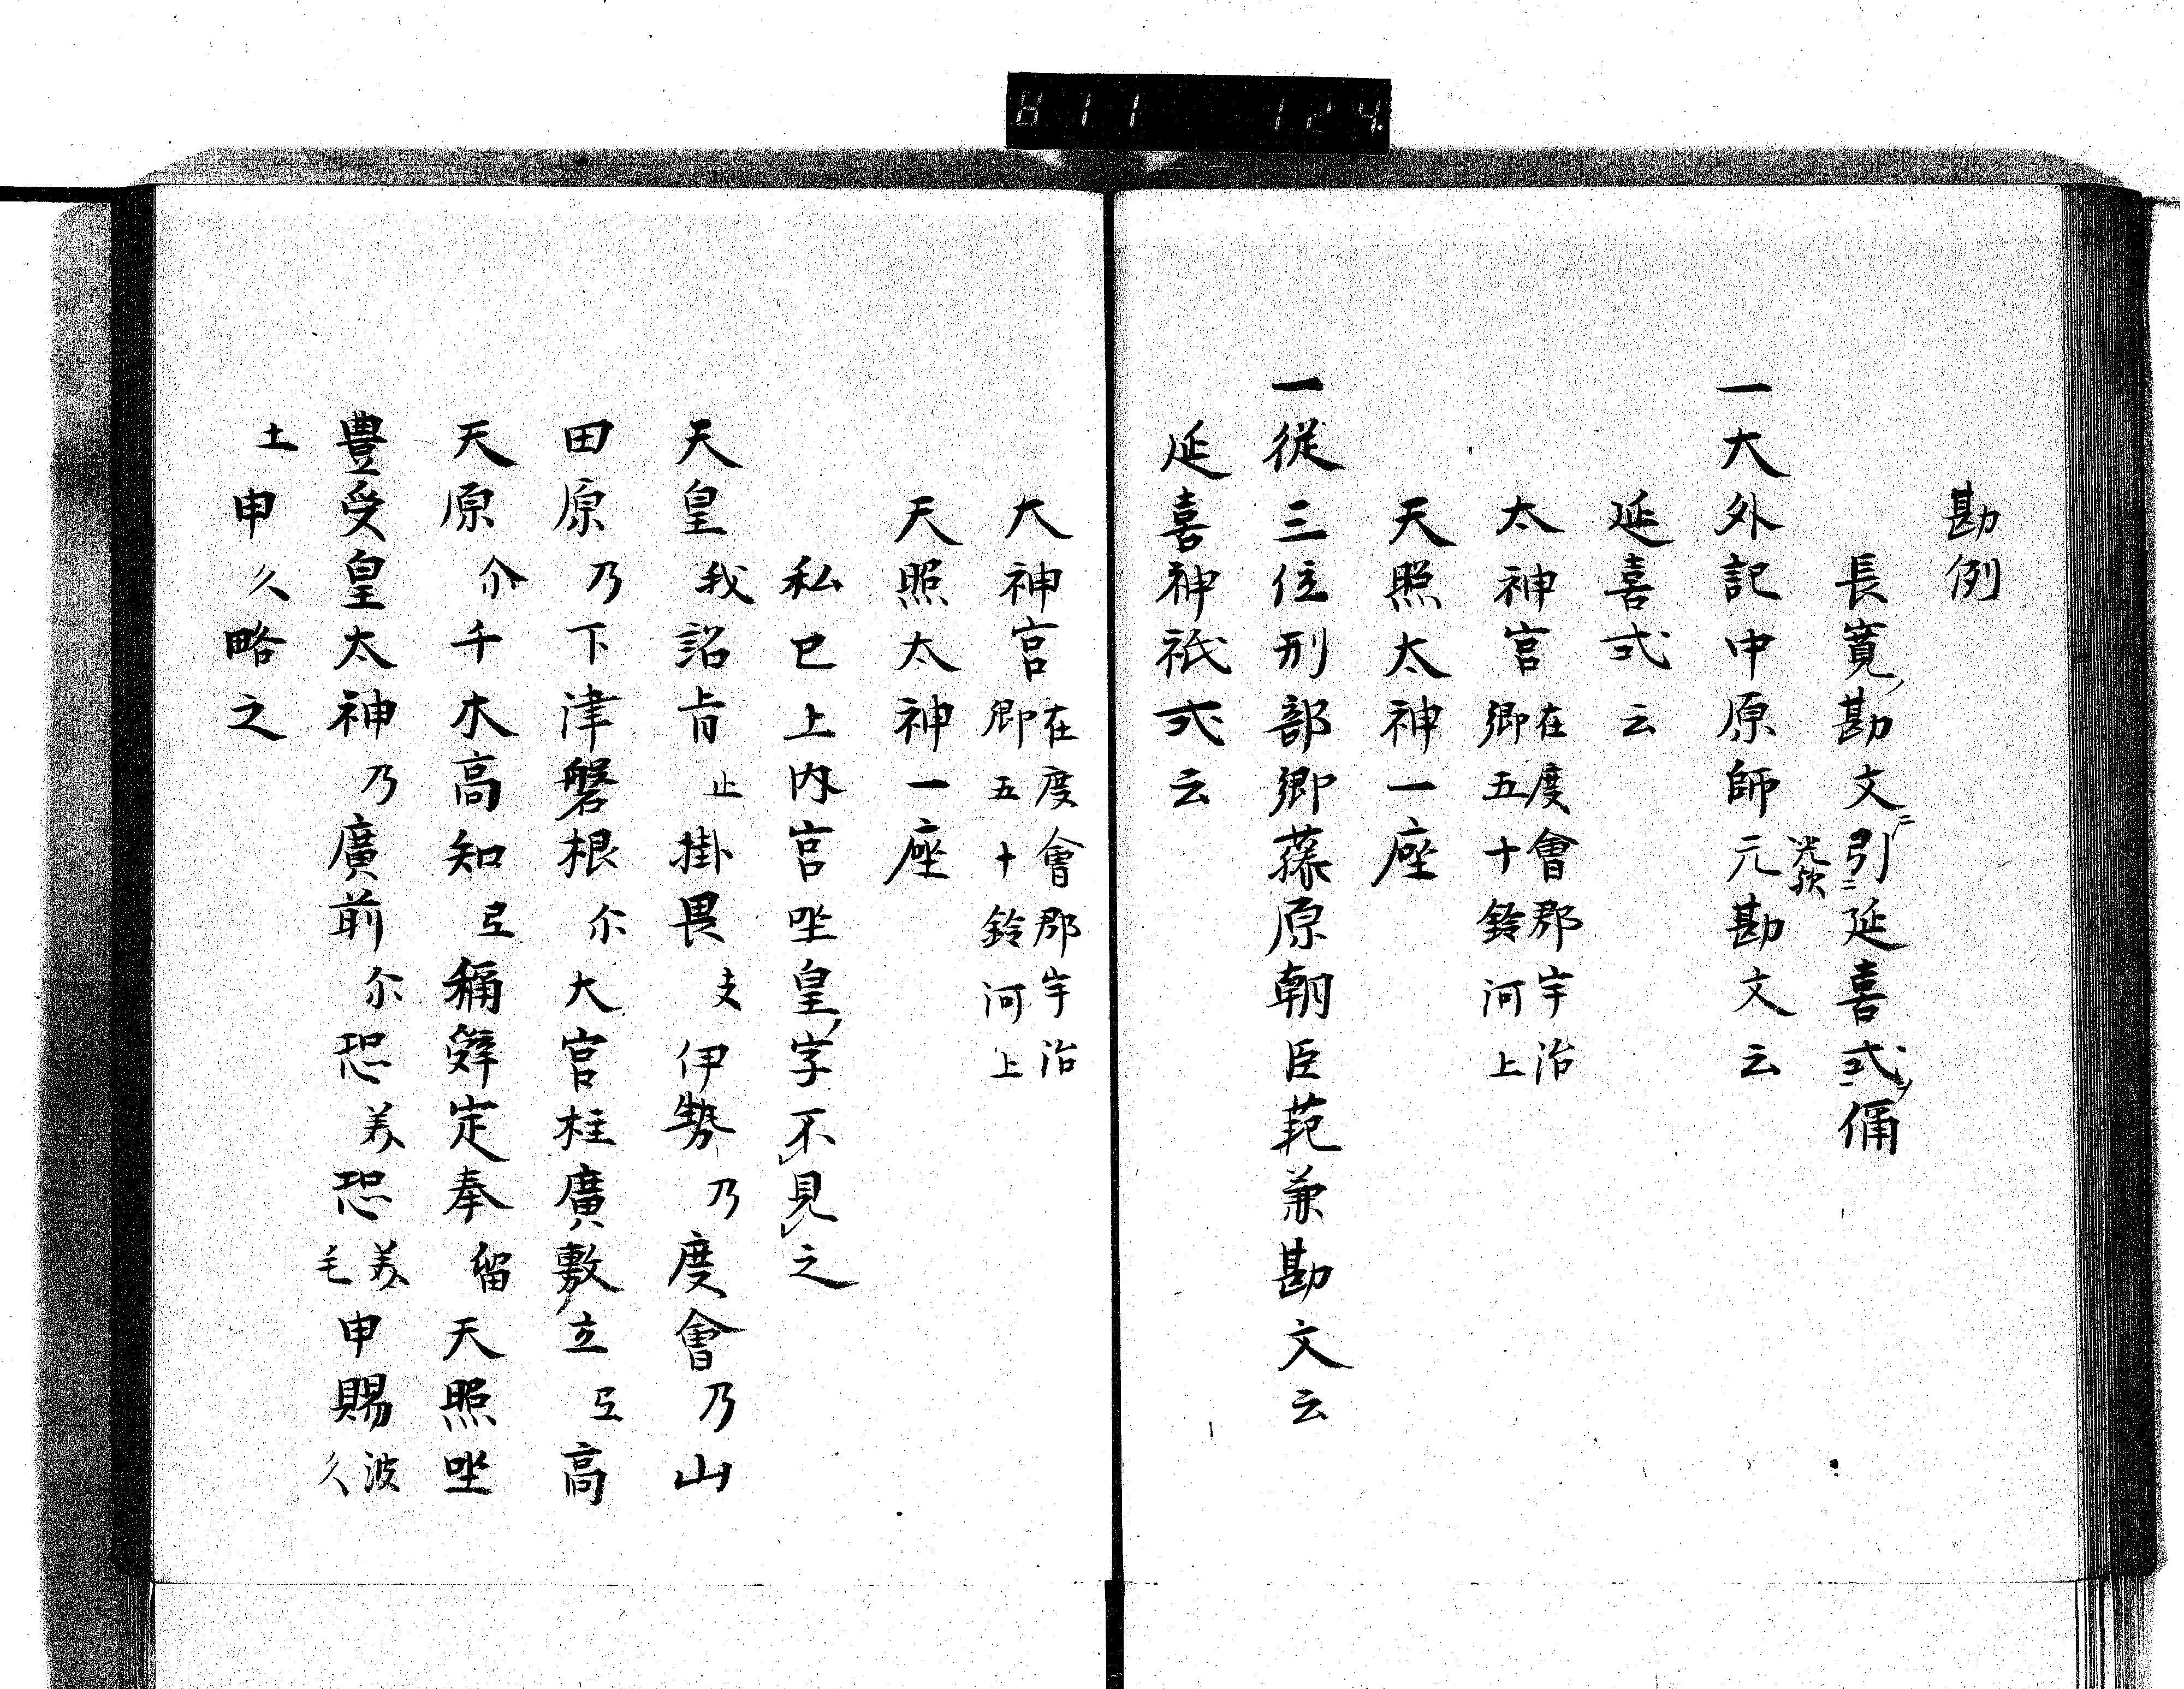 勘例
長寛勘文ニ引ニ延喜式ヲ偁
一大外記中原師元勘文云
延喜式云
太神宮 在度會郡宇治
卿五十鈴河上
天照太神一座
一從三位刑部卿藤原朝臣範兼勘文云
延喜神祇式云
大神宮 在度會郡宇治
卿五十鈴河上
天照太神一座
私已上内宮坐皇字不見之
天皇我詔肯止掛畏支伊勢乃度會乃山
田原乃下津磐根尓大宮柱廣敷立弖高
天原尓千木高知弖稱辞定奉留天照坐
豊受皇太神乃廣前尓恐美恐美毛申賜波久
土申久略之
811 124